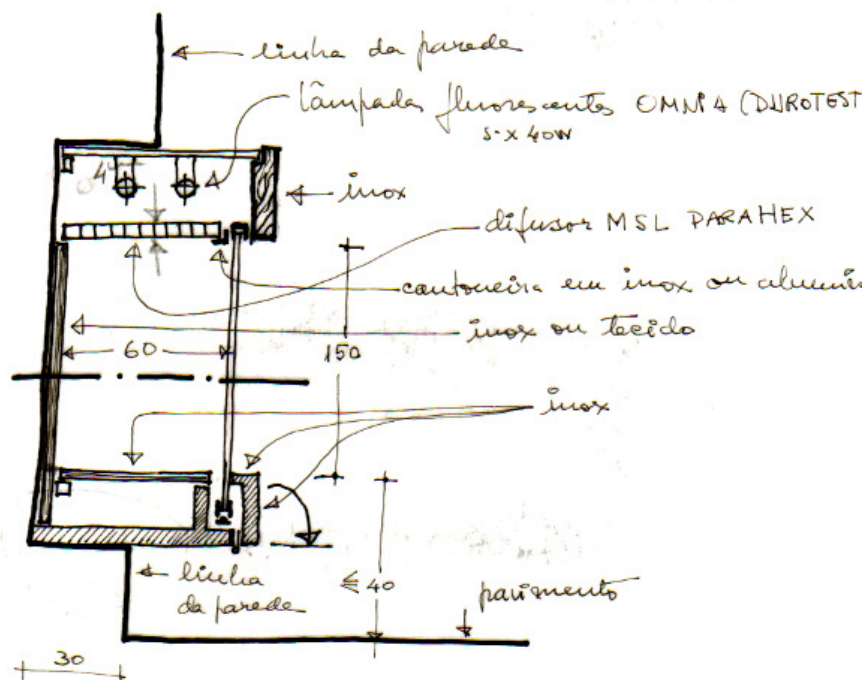 linha da parede
lâmpadas fluorescentes OMNIA (DUROTEST
5 X 40W
4
inox
difusor MSL PARAHEX
cantoneira em inox ou alumíni
inox ou tecido
60
150
inox
linha
da parede
≤ 40
pavimento
30